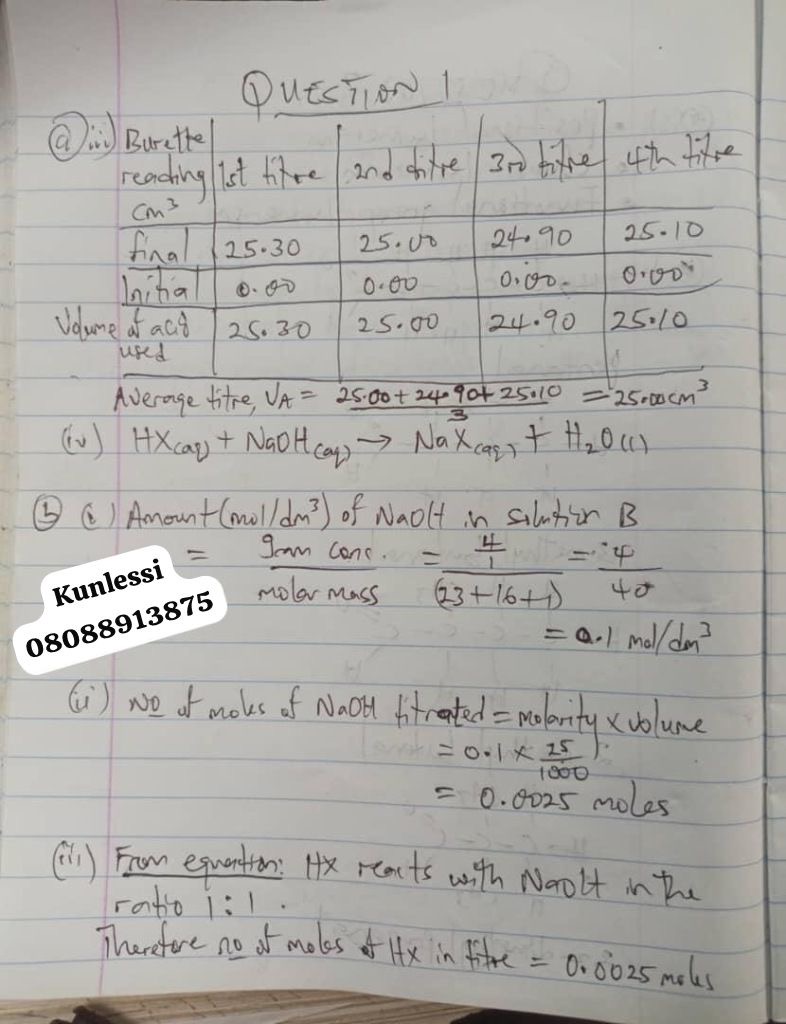 QUESTION 1
(a) iii) Burette reading cm³ | 1st titre | 2nd titre | 3rd titre | 4th titre
final | 25.30 | 25.00 | 24.90 | 25.10
Initial | 0.00 | 0.00 | 0.00 | 0.00
Volume of acid used | 25.30 | 25.00 | 24.90 | 25.10
Average titre, VA = (25.00 + 24.90 + 25.10)/3 = 25.00cm³
(iv) HX(aq) + NaOH(aq) → NaX(aq) + H₂O(l)
(b) (i) Amount (mol/dm³) of NaOH in solution B
= gram conc. / molar mass = (4/1) / (23+16+1) = 4/40
= 0.1 mol/dm³
Kunlessi
08088913875
(ii) No of moles of NaOH titrated = molarity x volume
= 0.1 x 25/1000
= 0.0025 moles
(iii) From equation: HX reacts with NaOH in the
ratio 1:1.
Therefore no of moles of HX in titre = 0.0025 moles